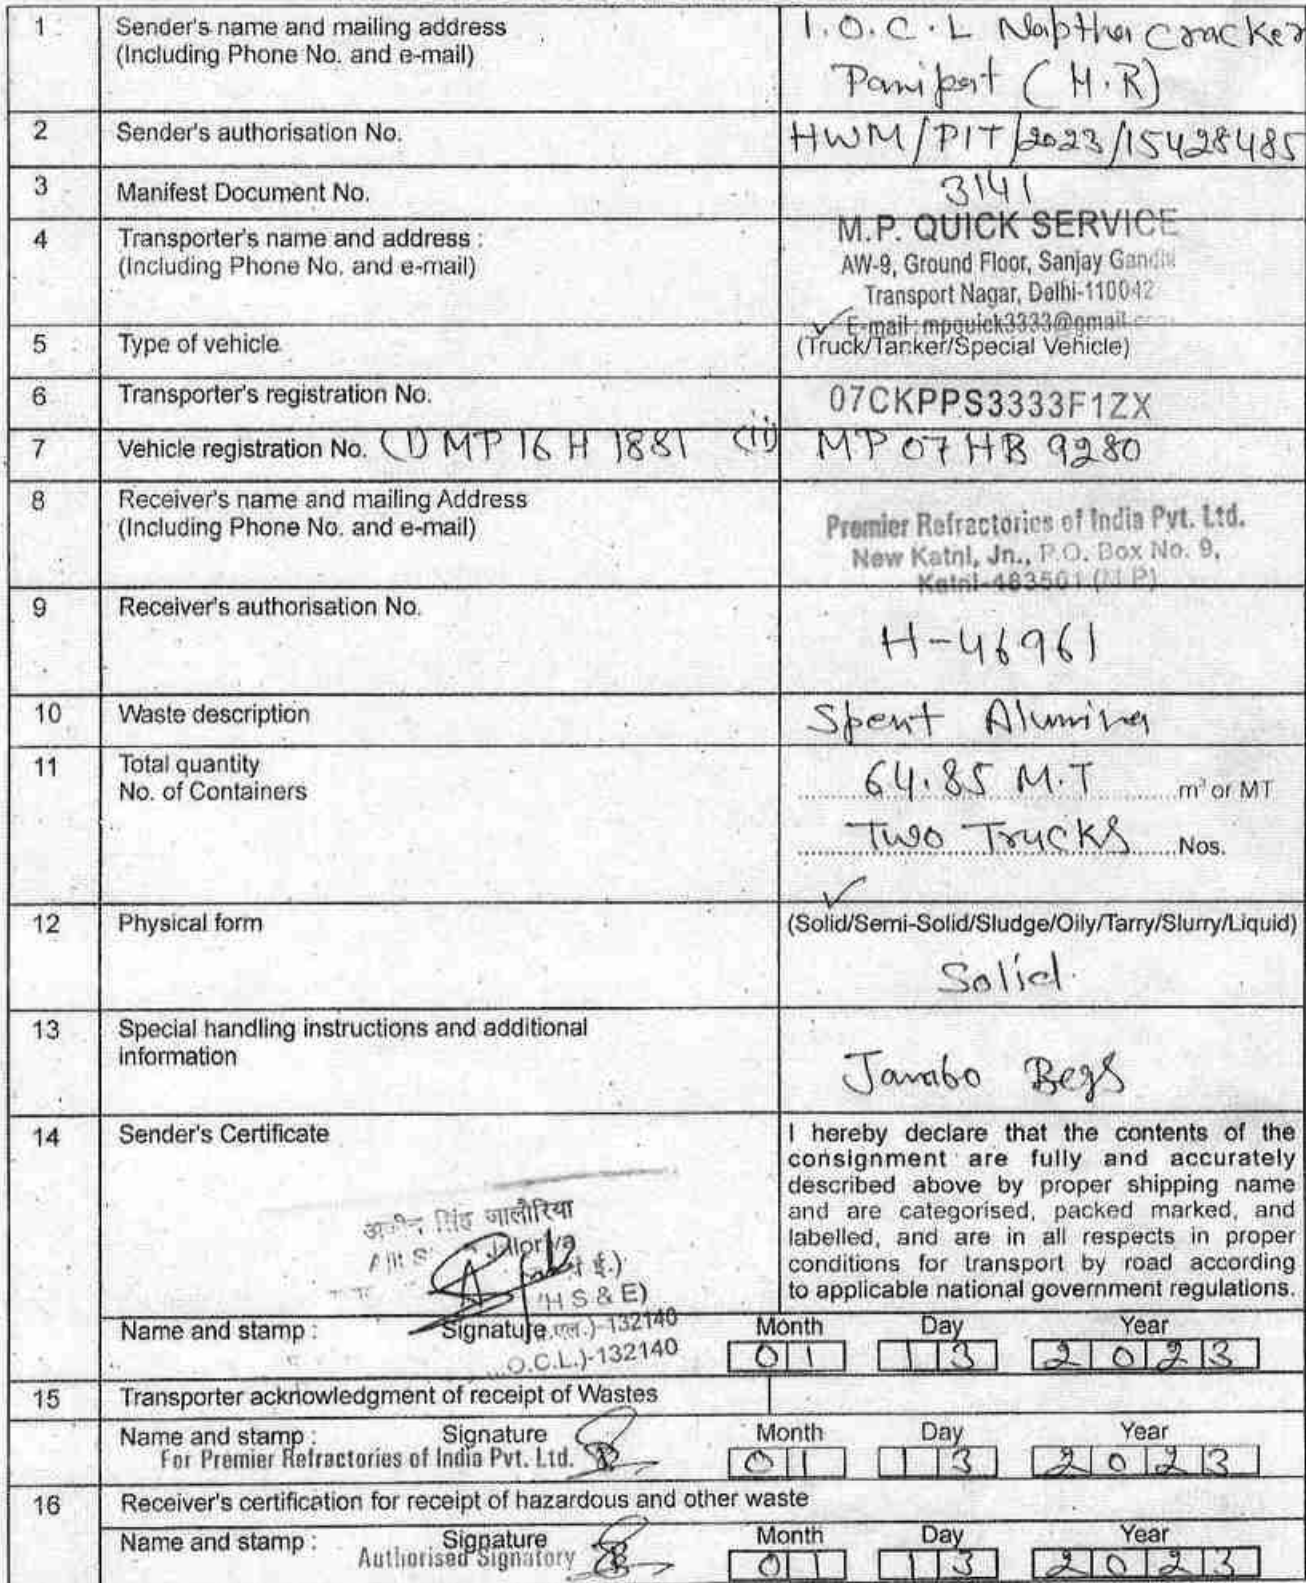 1 Sender's name and mailing address
(Including Phone No. and e-mail)
I.O.C.L Naptha Cracker
Panipat (H.R)
2 Sender's authorisation No. HWM/PIT/2023/15428485
3 Manifest Document No. 3141
4 Transporter's name and address :
(Including Phone No. and e-mail)
M.P. QUICK SERVICE
AW-9, Ground Floor, Sanjay Gandhi
Transport Nagar, Delhi-110042
E-mail : mpquick3333@gmail.com
5 Type of vehicle ✓ (Truck/Tanker/Special Vehicle)
6 Transporter's registration No. 07CKPPS3333F1ZX
7 Vehicle registration No. (I) MP 16 H 1881 (ii) MP 07 HB 9280
8 Receiver's name and mailing Address
(Including Phone No. and e-mail)
Premier Refractories of India Pvt. Ltd.
New Katni, Jn., P.O. Box No. 9,
Katni-483501 (M.P)
9 Receiver's authorisation No. H-46961
10 Waste description Spent Alumina
11 Total quantity 64.85 M.T m³ or MT
No. of Containers Two Trucks Nos.
12 Physical form ✓ (Solid/Semi-Solid/Sludge/Oily/Tarry/Slurry/Liquid)
Solid
13 Special handling instructions and additional
information
Jambo Begs
14 Sender's Certificate
I hereby declare that the contents of the
consignment are fully and accurately
described above by proper shipping name
and are categorised, packed marked, and
labelled, and are in all respects in proper
conditions for transport by road according
to applicable national government regulations.
सिंह जालौरिया
(H S & E)
Name and stamp : Signature एल.)-132140 Month Day Year
O.C.L.)-132140 01 13 2023
15 Transporter acknowledgment of receipt of Wastes
Name and stamp : Signature Month Day Year
For Premier Refractories of India Pvt. Ltd. 01 13 2023
16 Receiver's certification for receipt of hazardous and other waste
Name and stamp : Signature Month Day Year
Authorised Signatory 01 13 2023